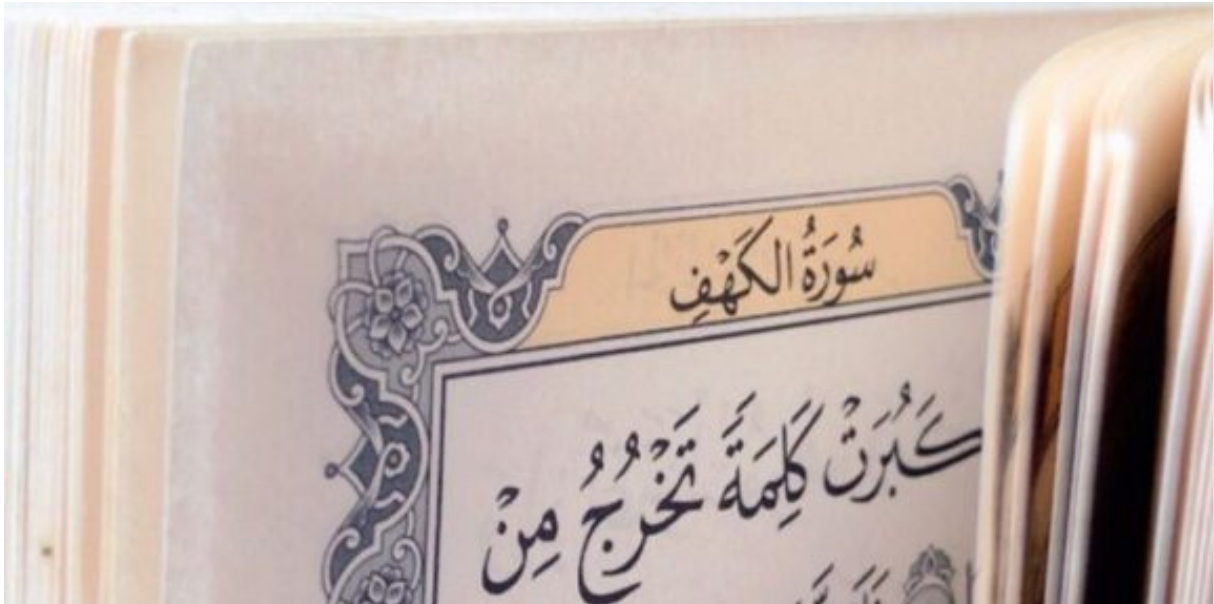 سُورَةُ الكَهْفِ
كَبُرَتْ كَلِمَةً تَخْرُجُ مِنْ